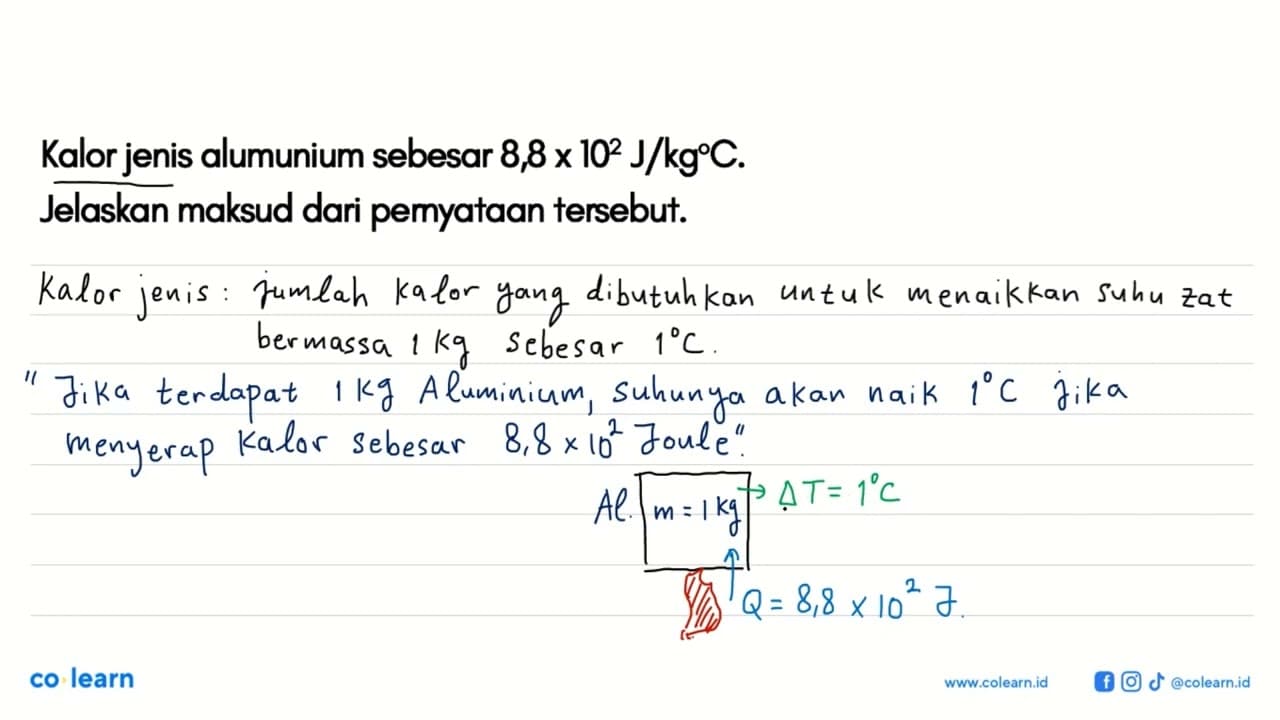 Kalor jenis alumunium sebesar 8,8 x 10² J/kg°C.
Jelaskan maksud dari pernyataan tersebut.
Kalor jenis : jumlah kalor yang dibutuhkan untuk menaikkan suhu zat
bermassa 1 kg sebesar 1°C.
" Jika terdapat 1 kg Aluminium, suhunya akan naik 1°C jika
menyerap kalor sebesar 8,8 x 10² Joule".
Al. m = 1 kg → ΔT = 1°C
Q = 8,8 x 10² J.
co learn
www.colearn.id @colearn.id